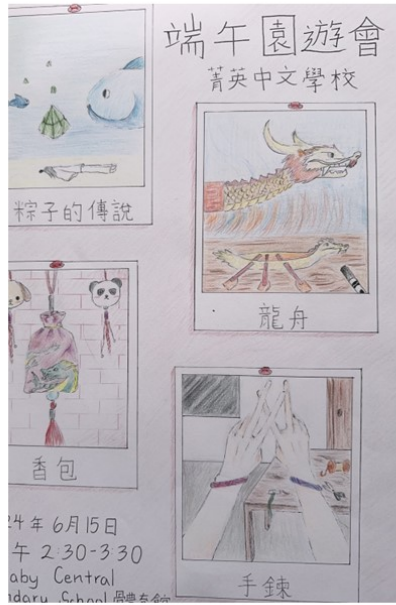 端午園遊會
菁英中文學校
粽子的傳說
龍舟
香包
手鍊
24年6月15日
午 2:30-3:30
aby Central
ndary School